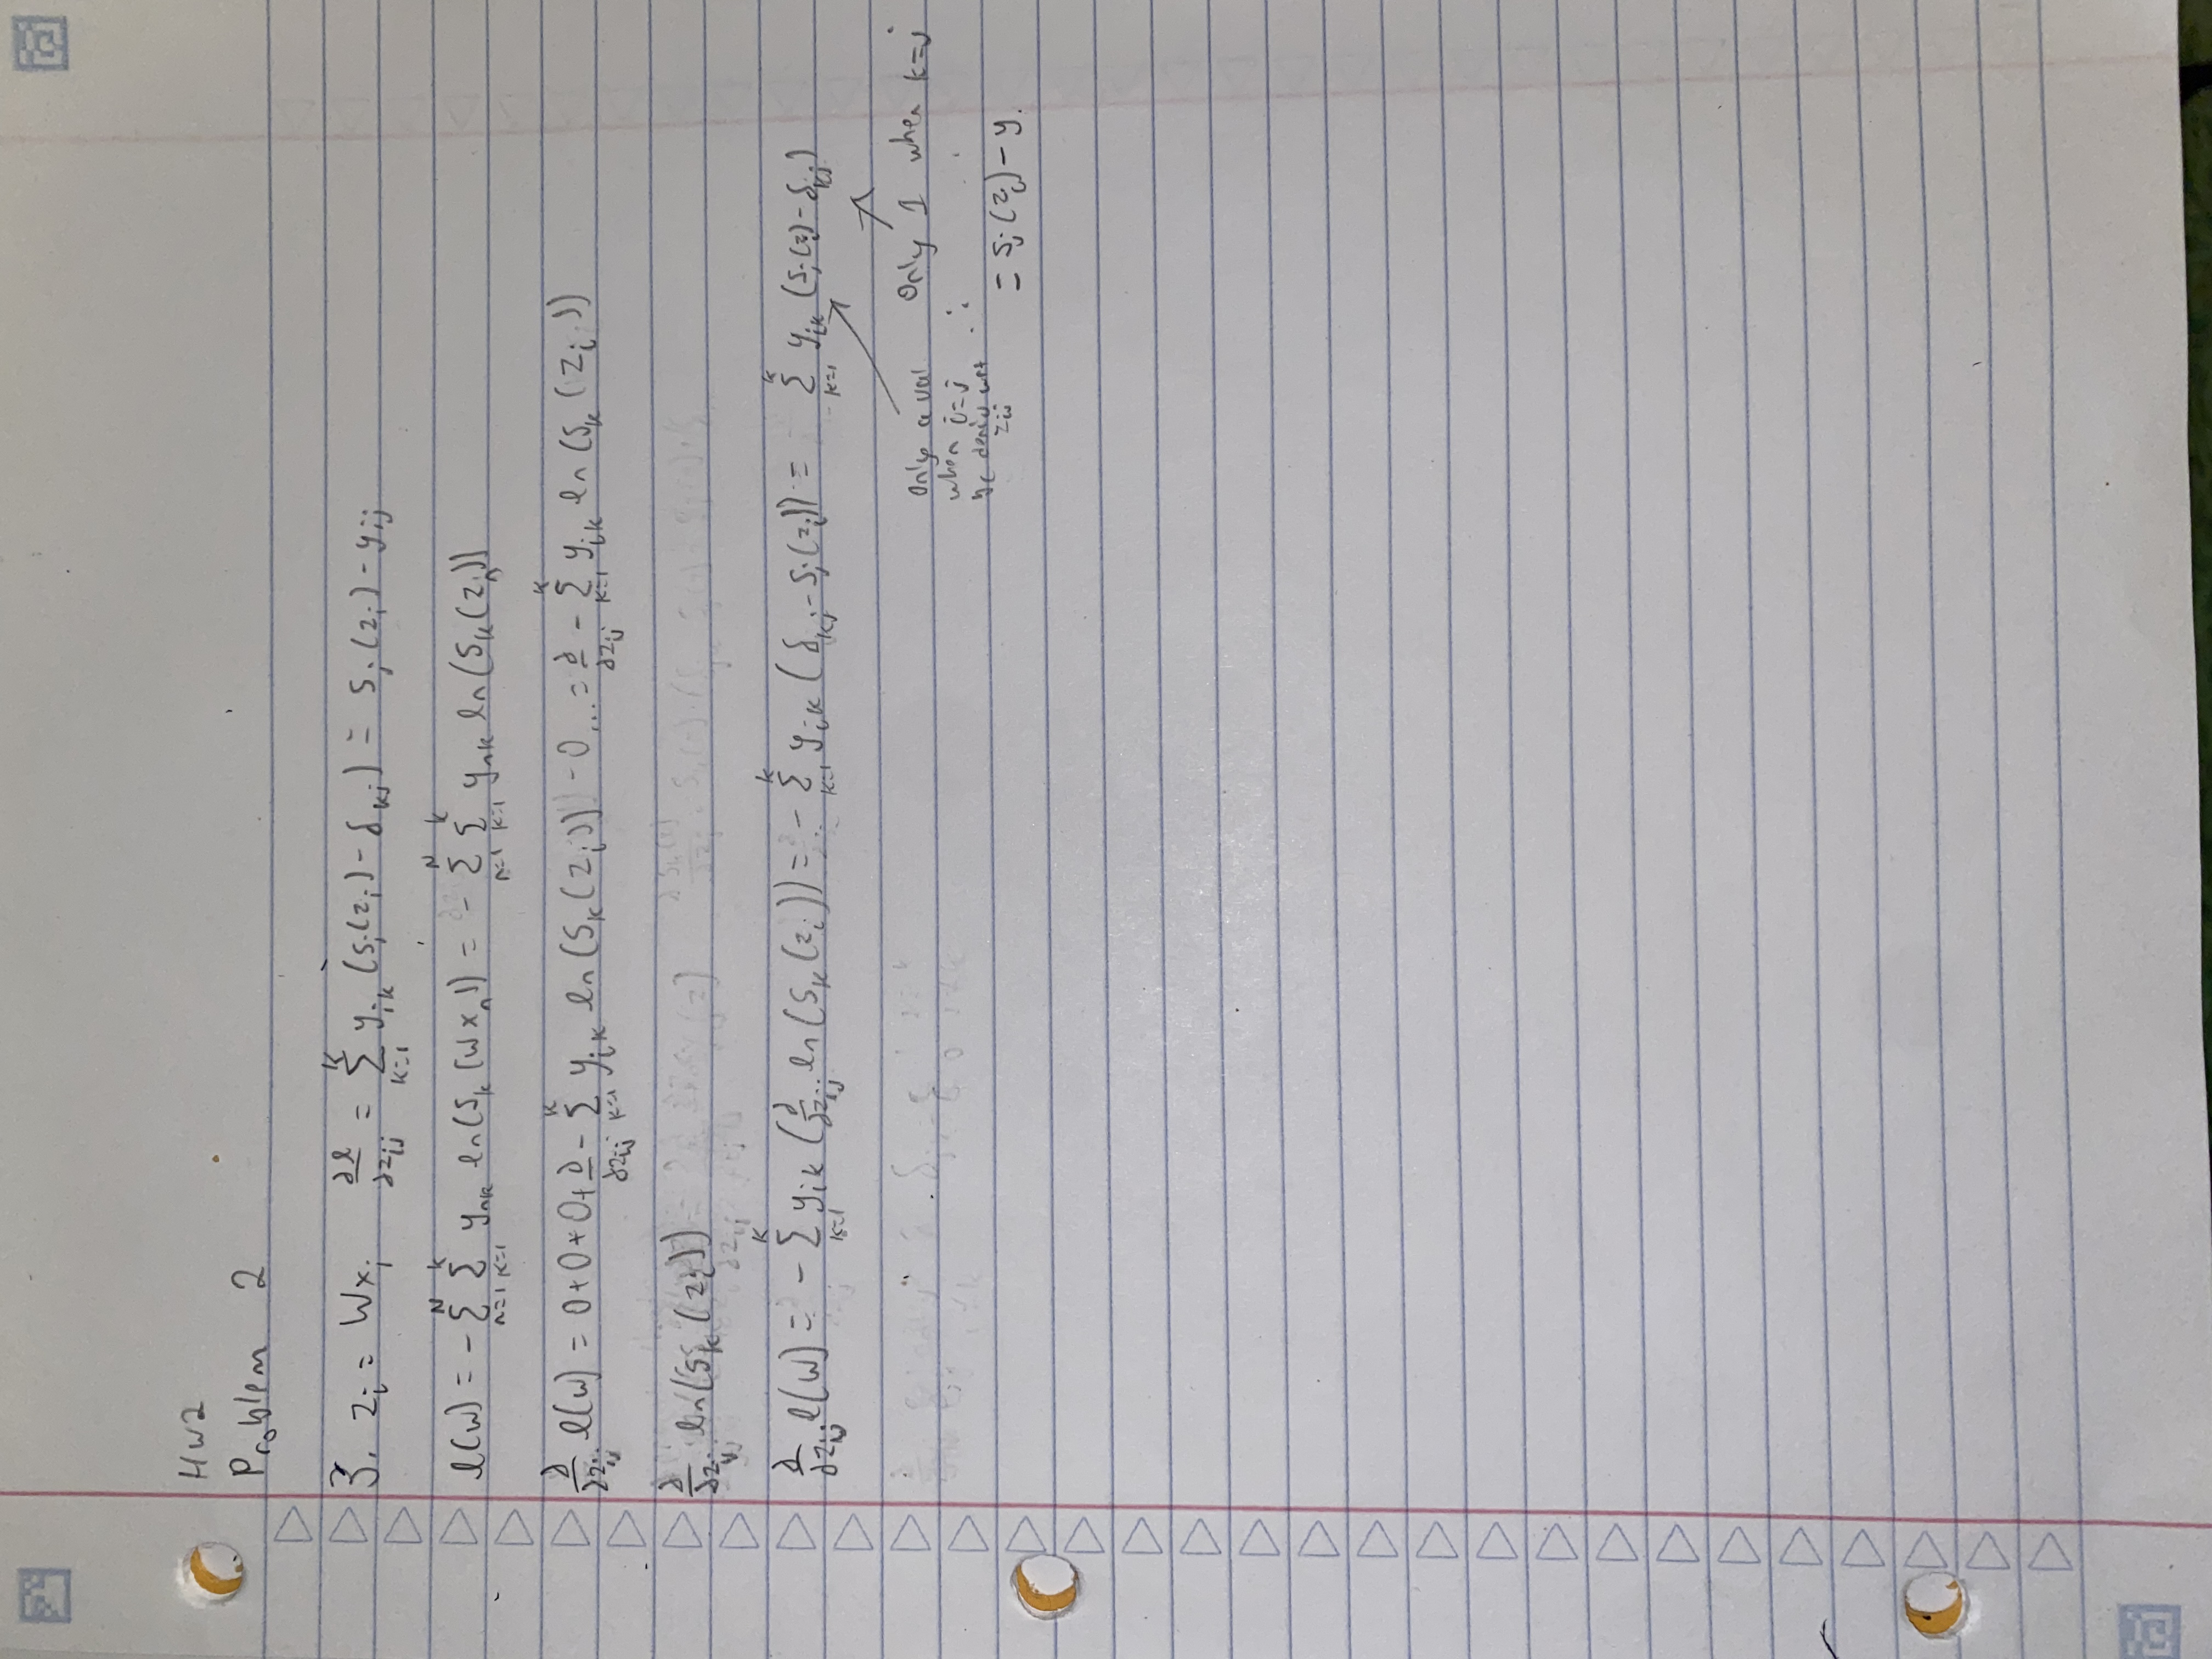 HW2
Problem 2
3. z_i = Wx_i ∂ℓ/∂z_ij = Σ_{k=1}^{K} y_ik (s_j(z_i) - δ_kj) = s_j(z_i) - y_ij
ℓ(W) = - Σ_{n=1}^{N} Σ_{k=1}^{K} y_nk ln(s_k(Wx_n)) = - Σ_{n=1}^{N} Σ_{k=1}^{K} y_nk ln(s_k(z_n))
∂/∂z_ij ℓ(W) = 0+0+0+ ∂/∂z_ij - Σ_{k=1}^{K} y_ik ln(s_k(z_i)) - 0... = ∂/∂z_ij - Σ_{k=1}^{K} y_ik ln(s_k(z_i))
∂/∂z_ij ln(s_k(z_i))
∂/∂z_ij ℓ(W) = - Σ_{k=1}^{K} y_ik (∂/∂z_ij ln(s_k(z_i)) = - Σ_{k=1}^{K} y_ik (δ_kj - s_j(z_i)) = Σ_{k=1}^{K} y_ik (s_j(z_i) - δ_kj)
Only a val
when i=j
bc deriv wrt
z_ij
Only 1 when k=j
∴
= s_j(z_i) - y.